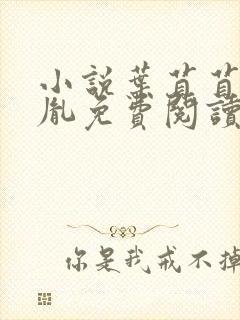 小說葉苒苒
胤免費閱讀
你是我戒不掉